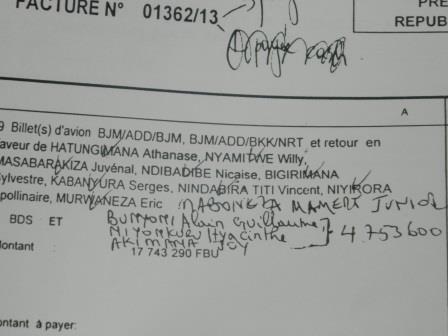 FACTURE N° 01362/13
PRE
REPUB
A
9 Billet(s) d'avion BJM/ADD/BJM, BJM/ADD/BKK/NRT et retour en
faveur de HATUNGIMANA Athanase, NYAMITWE Willy,
MASABARAKIZA Juvénal, NDIBADIBE Nicaise, BIGIRIMANA
Sylvestre, KABANYURA Serges, NINDABIRA TITI Vincent, NIYIRORA
Apollinaire, MURWANEZA Eric NABONEZA MAMERT JUNIOR
BDS ET BUNYONI Alain Guillaume
NIYONKURU Hyacinthe } 4 753 600
AKIMANA JOY
Montant : 17 743 290 FBU
ontant à payer: